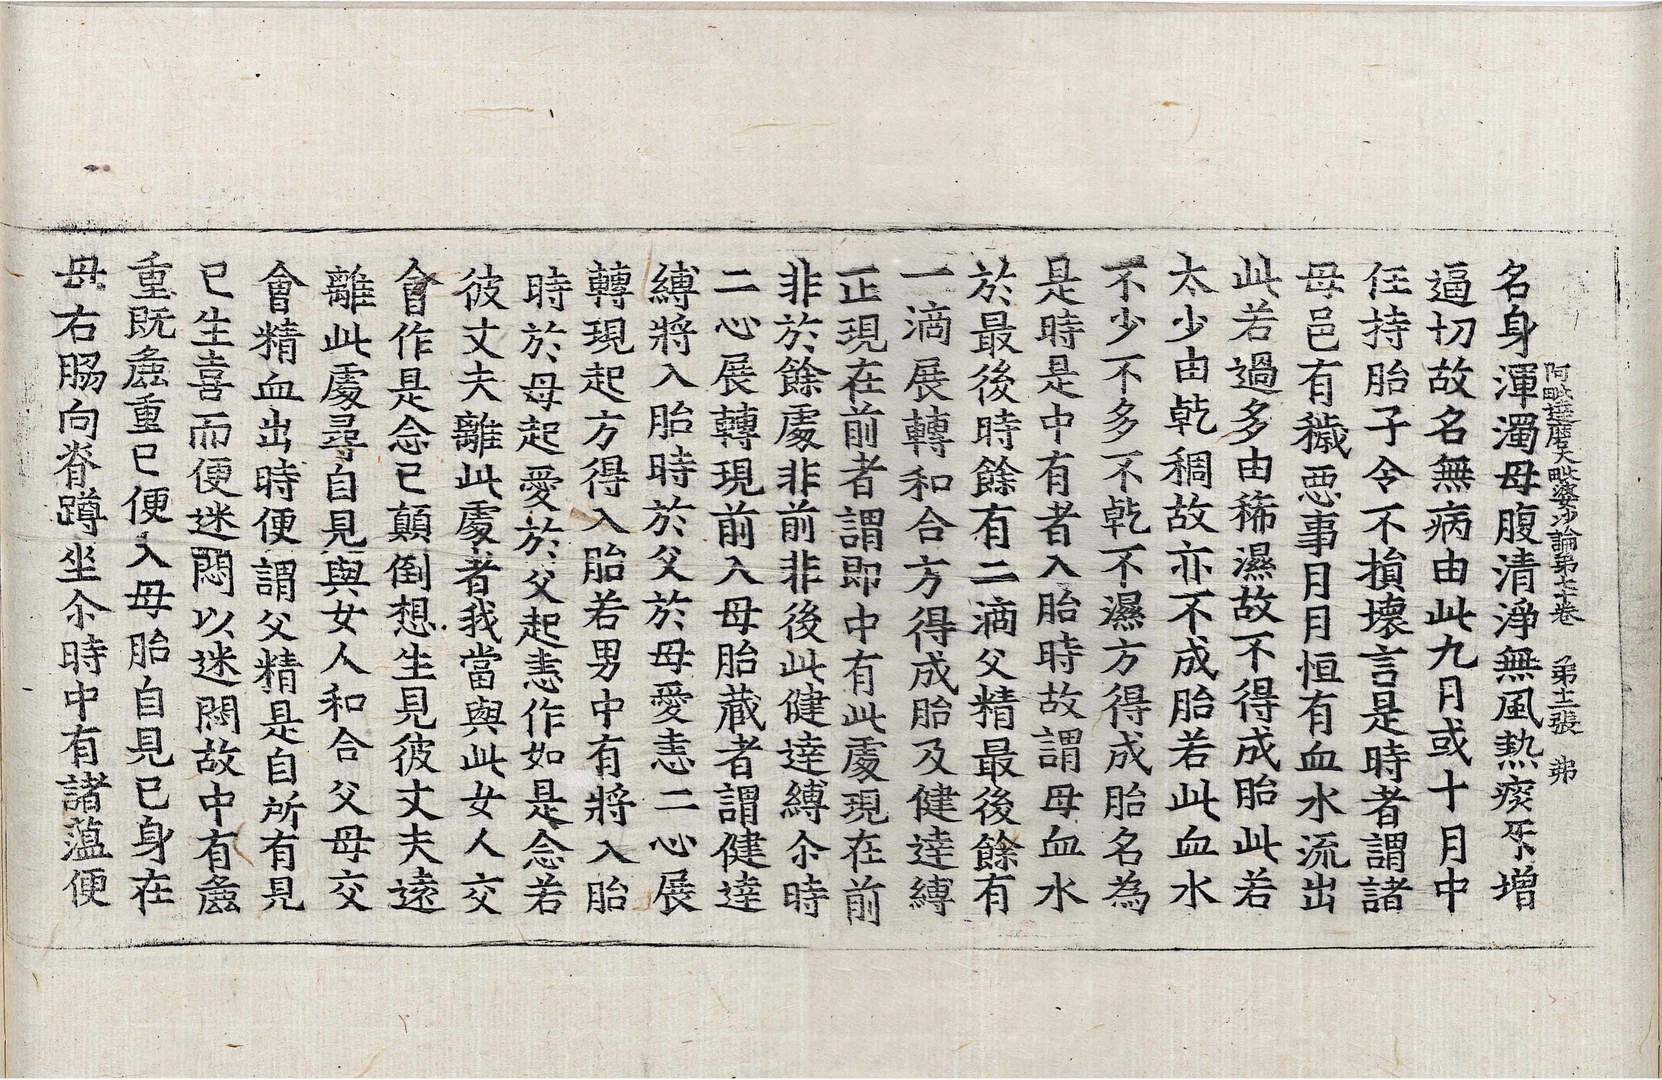 阿毗達磨大毗婆沙論第七十卷　第十二張　弗
名身渾濁母腹清淨無風熱痰互增
逼切故名無病由此九月或十月中
任持胎子令不損壞言是時者謂諸
母邑有穢惡事月月恒有血水流出
此若過多由稀濕故不得成胎此若
太少由乾稠故亦不成胎若此血水
不少不多不乾不濕方得成胎名為
是時是中有者入胎時故謂母血水
於最後時餘有二滴父精最後餘有
一滴展轉和合方得成胎及健達縛
正現在前者謂即中有此處現在前
非於餘處非前非後此健達縛尒時
二心展轉現前入母胎藏者謂健達
縛將入胎時於父於母愛恚二心展
轉現起方得入胎若男中有將入胎
時於母起愛於父起恚作如是念若
彼丈夫離此處者我當與此女人交
會作是念已顛倒想生見彼丈夫遠
離此處尋自見與女人和合父母交
會精血出時便謂父精是自所有見
已生喜而便迷悶以迷悶故中有麁
重既麁重已便入母胎自見已身在
母右脇向脊蹲坐尒時中有諸蘊便